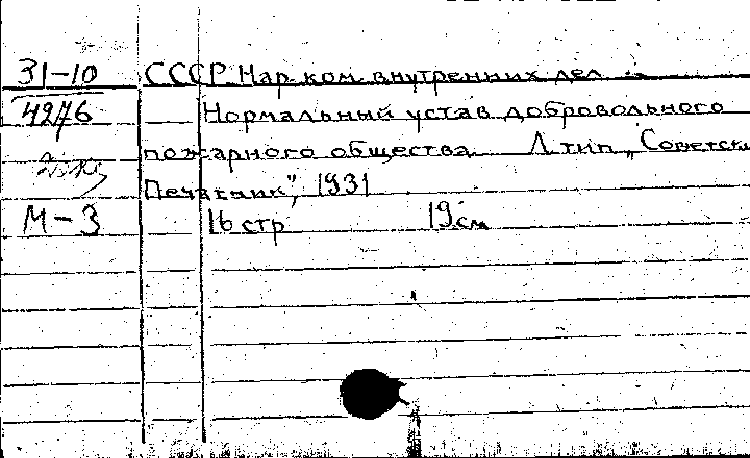 31-10 СССР Нар ком. внутренних дел
4276 Нормальный устав добровольного
пожарного общества. Л тип „Советск
Печатник", 1931
М-3 16 стр 19см